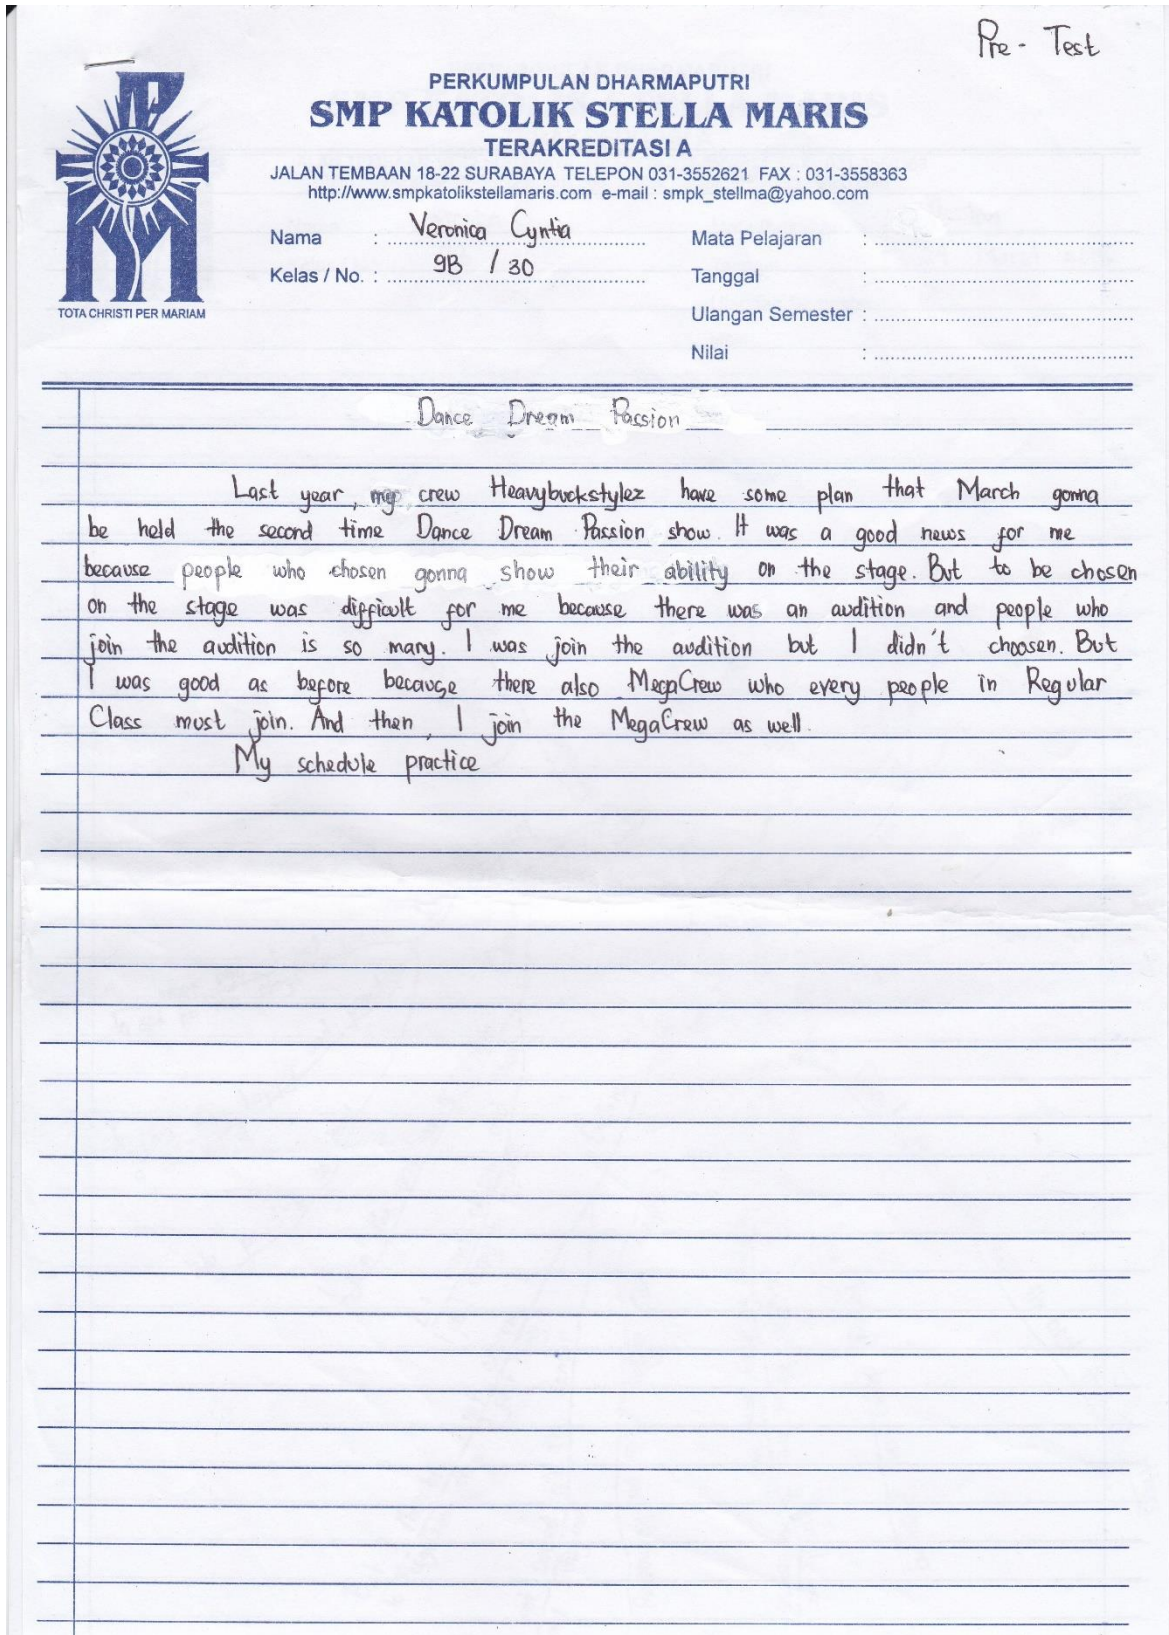 Pre - Test
PERKUMPULAN DHARMAPUTRI
SMP KATOLIK STELLA MARIS
TERAKREDITASI A
JALAN TEMBAAN 18-22 SURABAYA TELEPON 031-3552621 FAX : 031-3558363
http://www.smpkatolikstellamaris.com e-mail : smpk_stellma@yahoo.com
TOTA CHRISTI PER MARIAM
Nama : Veronica Cyntia
Kelas / No. : 9B / 30
Mata Pelajaran :
Tanggal :
Ulangan Semester :
Nilai :
Dance Dream Passion
Last year, my crew Heavybuckstylez have some plan that March gonna
be held the second time Dance Dream Passion show. It was a good news for me
because people who chosen gonna show their ability on the stage. But to be chosen
on the stage was difficult for me because there was an audition and people who
join the audition is so many. I was join the audition but I didn't choosen. But
I was good as before because there also MegaCrew who every people in Regular
Class must join. And then, I join the MegaCrew as well.
My schedule practice